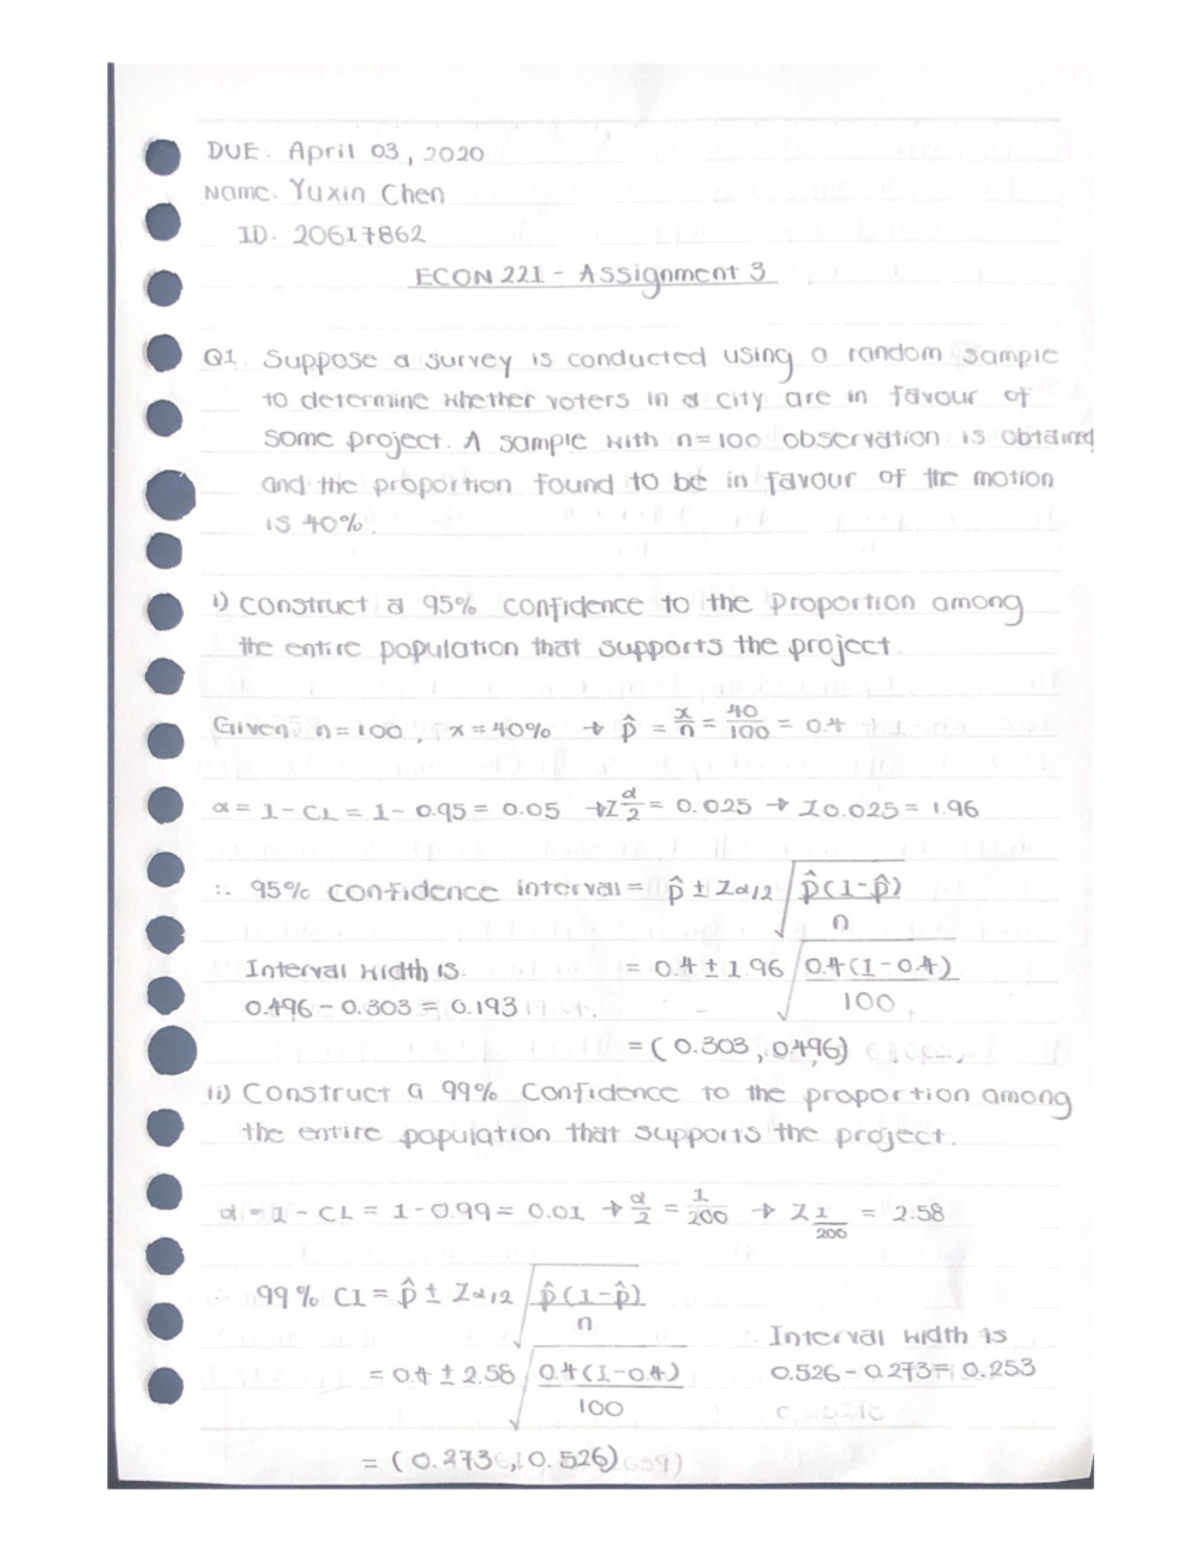 DUE: April 03, 2020
Name: Yuxin Chen
ID. 20617862
ECON 221 - Assignment 3
Q1. Suppose a survey is conducted using a random sample
to determine whether voters in a city are in favour of
some project. A sample with n=100 observation is obtained
and the proportion found to be in favour of the motion
is 40%.
i) Construct a 95% confidence to the proportion among
the entire population that supports the project
Given: n=100, x=40% → p̂ = x/n = 40/100 = 0.4
α = 1 - CL = 1 - 0.95 = 0.05 → Z α/2 = 0.025 → Z0.025 = 1.96
∴ 95% confidence interval = p̂ ± Zα/2 √(p̂(1-p̂)/n)
Interval width is = 0.4 ± 1.96 √(0.4(1-0.4)/100)
0.496 - 0.303 = 0.193
= (0.303, 0.496)
ii) Construct a 99% Confidence to the proportion among
the entire population that supports the project.
α = 1 - CL = 1 - 0.99 = 0.01 → α/2 = 1/200 → Z 1/200 = 2.58
∴ 99% CI = p̂ ± Zα/2 √(p̂(1-p̂)/n)
∴ Interval width is
= 0.4 ± 2.58 √(0.4(1-0.4)/100) 0.526 - 0.273 = 0.253
= (0.273, 0.526)